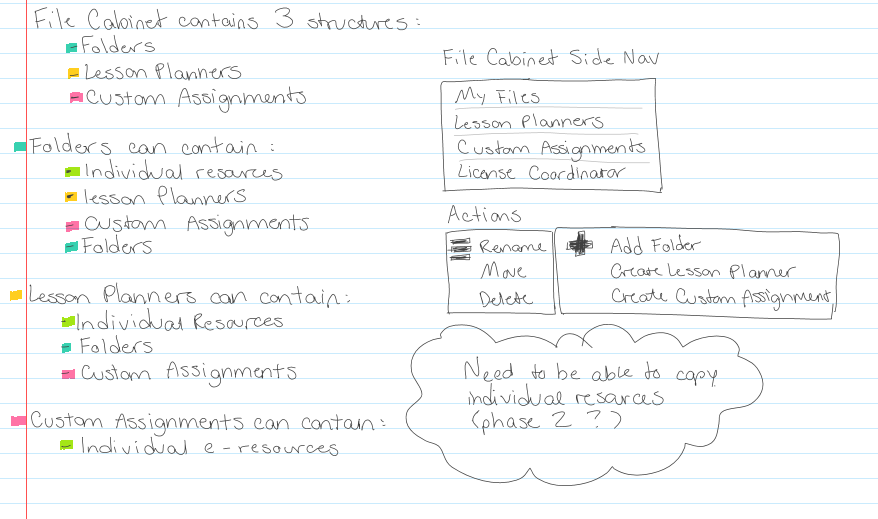 File Cabinet contains 3 structures:
Folders
Lesson Planners
Custom Assignments
Folders can contain:
Individual resources
lesson Planners
Custom Assignments
Folders
Lesson Planners can contain:
Individual Resources
Folders
Custom Assignments
Custom Assignments can contain:
Individual e-resources
File Cabinet Side Nav
My Files
Lesson Planners
Custom Assignments
License Coordinator
Actions
Rename
Move
Delete
Add Folder
Create Lesson Planner
Create Custom Assignment
Need to be able to copy
individual resources
(phase 2 ?)